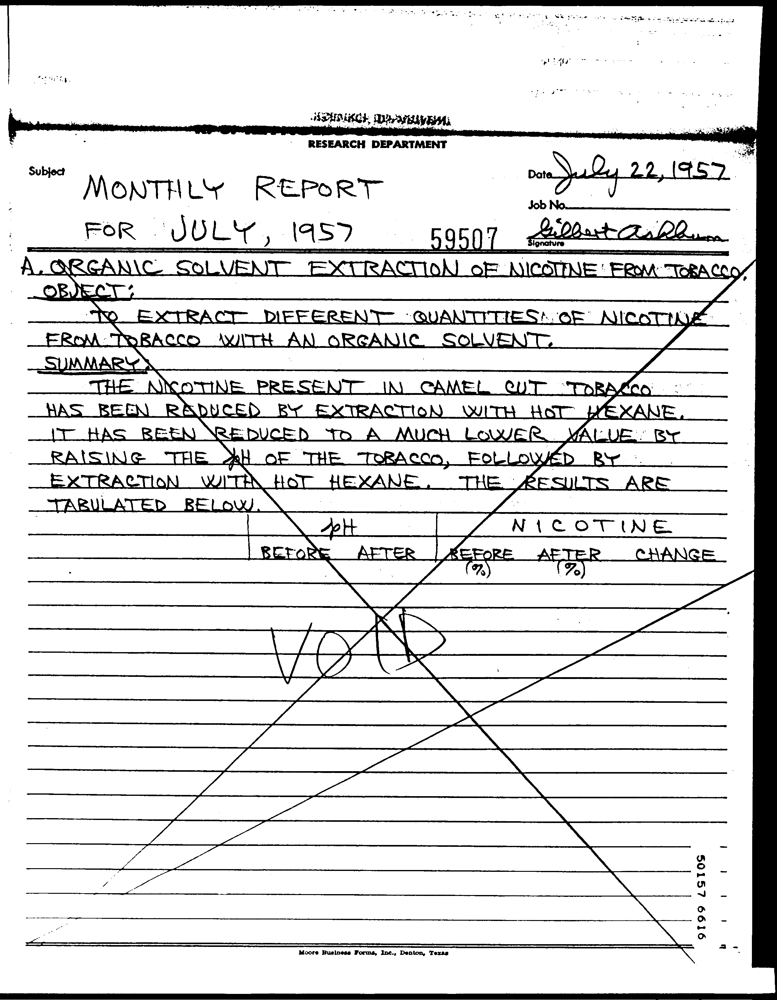 RESEARCH DEPARTMENT
Subject MONTHLY REPORT
FOR JULY, 1957
Date July 22, 1957
Job No.
59507
Gilbert Ashburn
Signature
A. ORGANIC SOLVENT EXTRACTION OF NICOTINE FROM TOBACCO.
OBJECT:
TO EXTRACT DIFFERENT QUANTITIES OF NICOTINE
FROM TOBACCO WITH AN ORGANIC SOLVENT.
SUMMARY:
THE NICOTINE PRESENT IN CAMEL CUT TOBACCO
HAS BEEN REDUCED BY EXTRACTION WITH HOT HEXANE.
IT HAS BEEN REDUCED TO A MUCH LOWER VALUE BY
RAISING THE pH OF THE TOBACCO, FOLLOWED BY
EXTRACTION WITH HOT HEXANE. THE RESULTS ARE
TABULATED BELOW.
pH NICOTINE
BEFORE AFTER BEFORE AFTER CHANGE
(%) (%)
VOID
50157 6616
Moore Business Forms, Inc., Denton, Texas